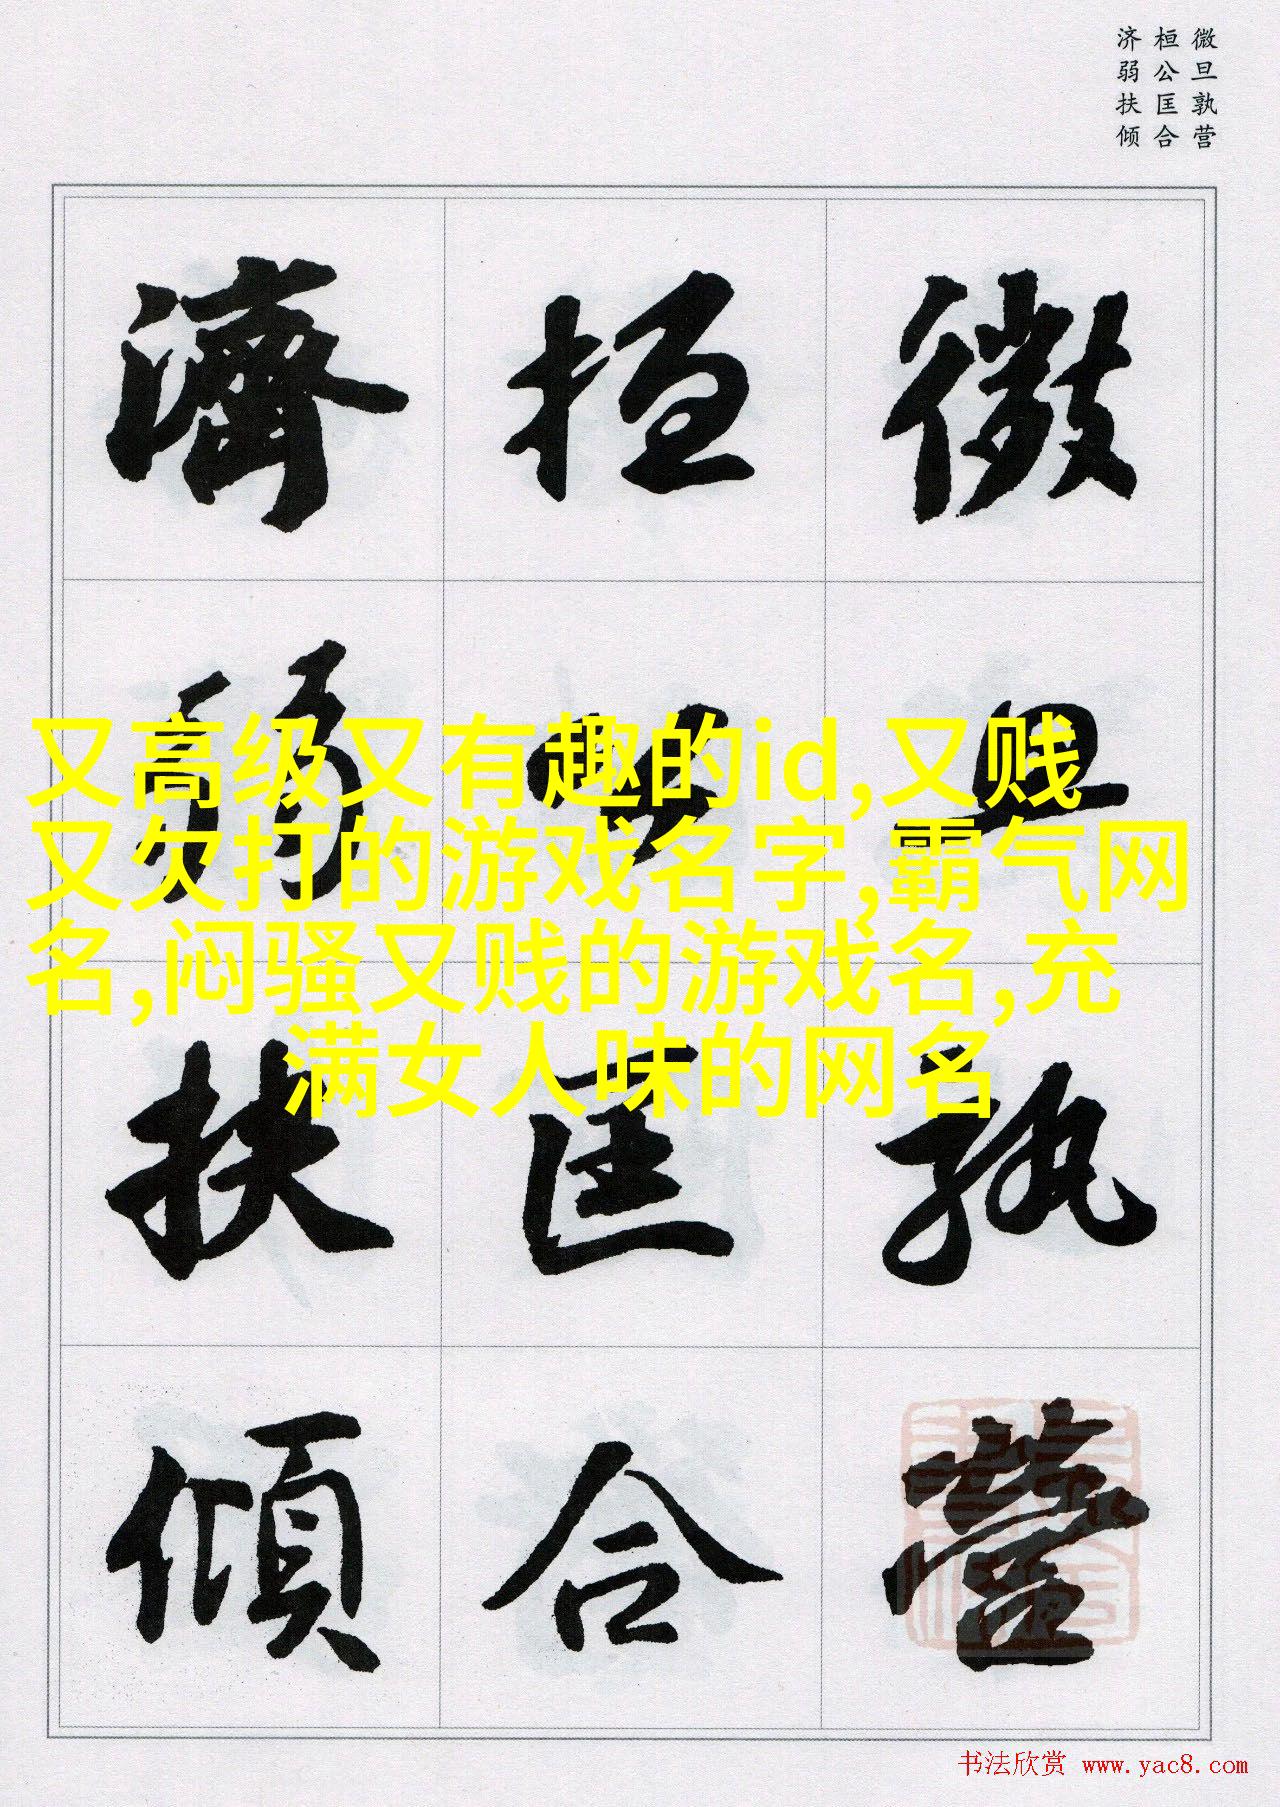 微旦孰营
桓公匡合
济弱扶倾
微旦孰營
桓公匡合
濟弱扶傾
又高级又有趣的id,又贱
又欠打的游戏名字,霸气网
名,闷骚又贱的游戏名,充
满女人味的网名
书法欣赏 www.yac8.com